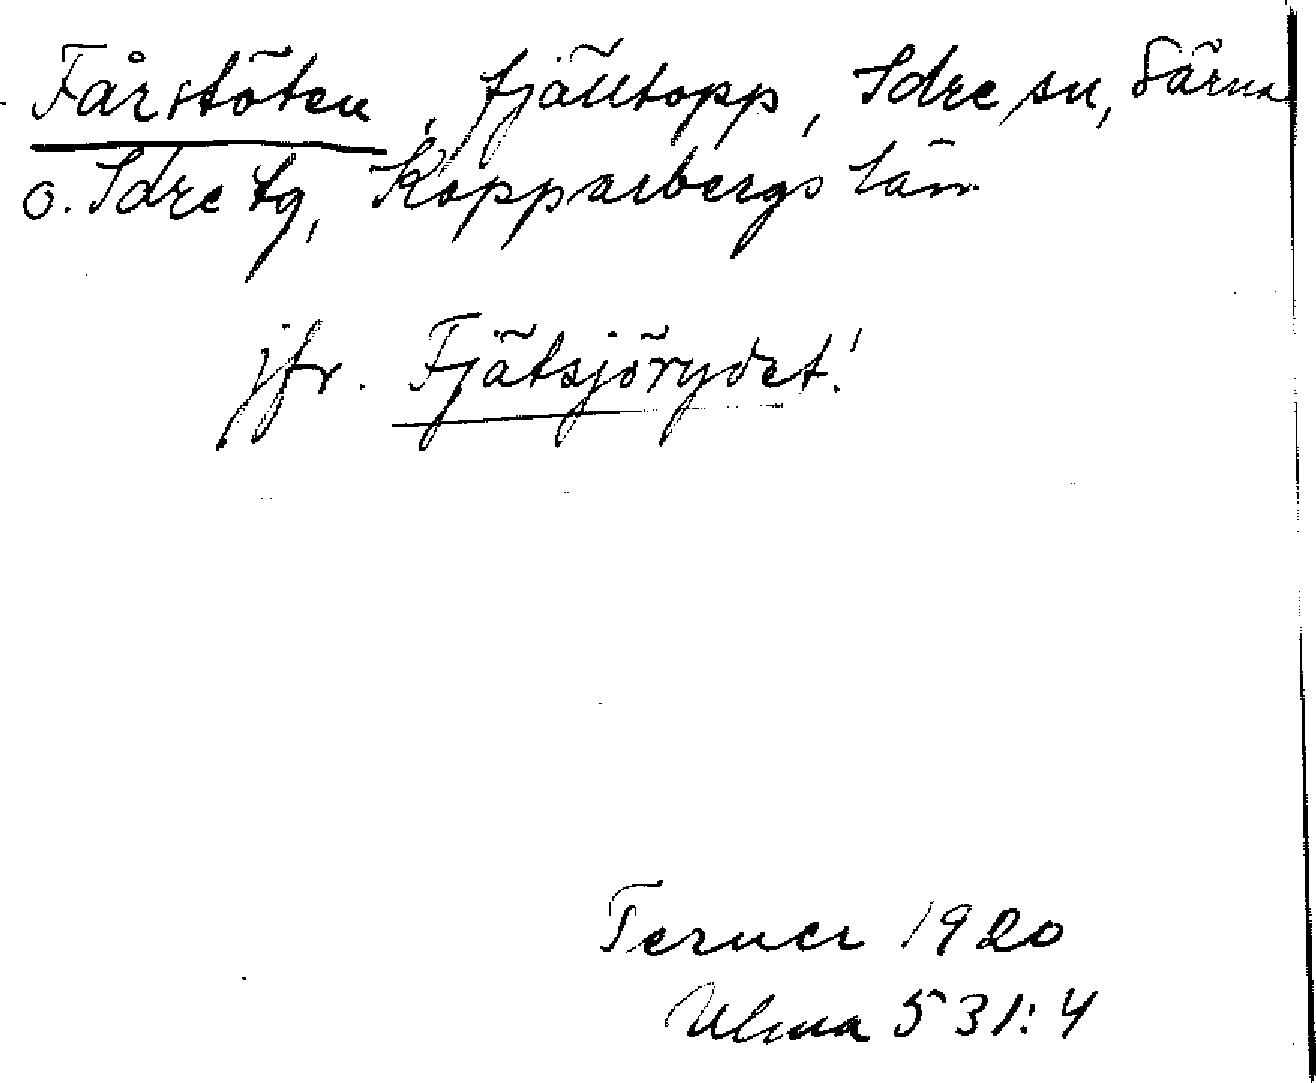 Fårstöten, fjälltopp, Idre sn, Särna
o. Idre tg, Kopparbergs län
jfr. Fjätsjörydet!
Terner 1920
Ulma 531:4